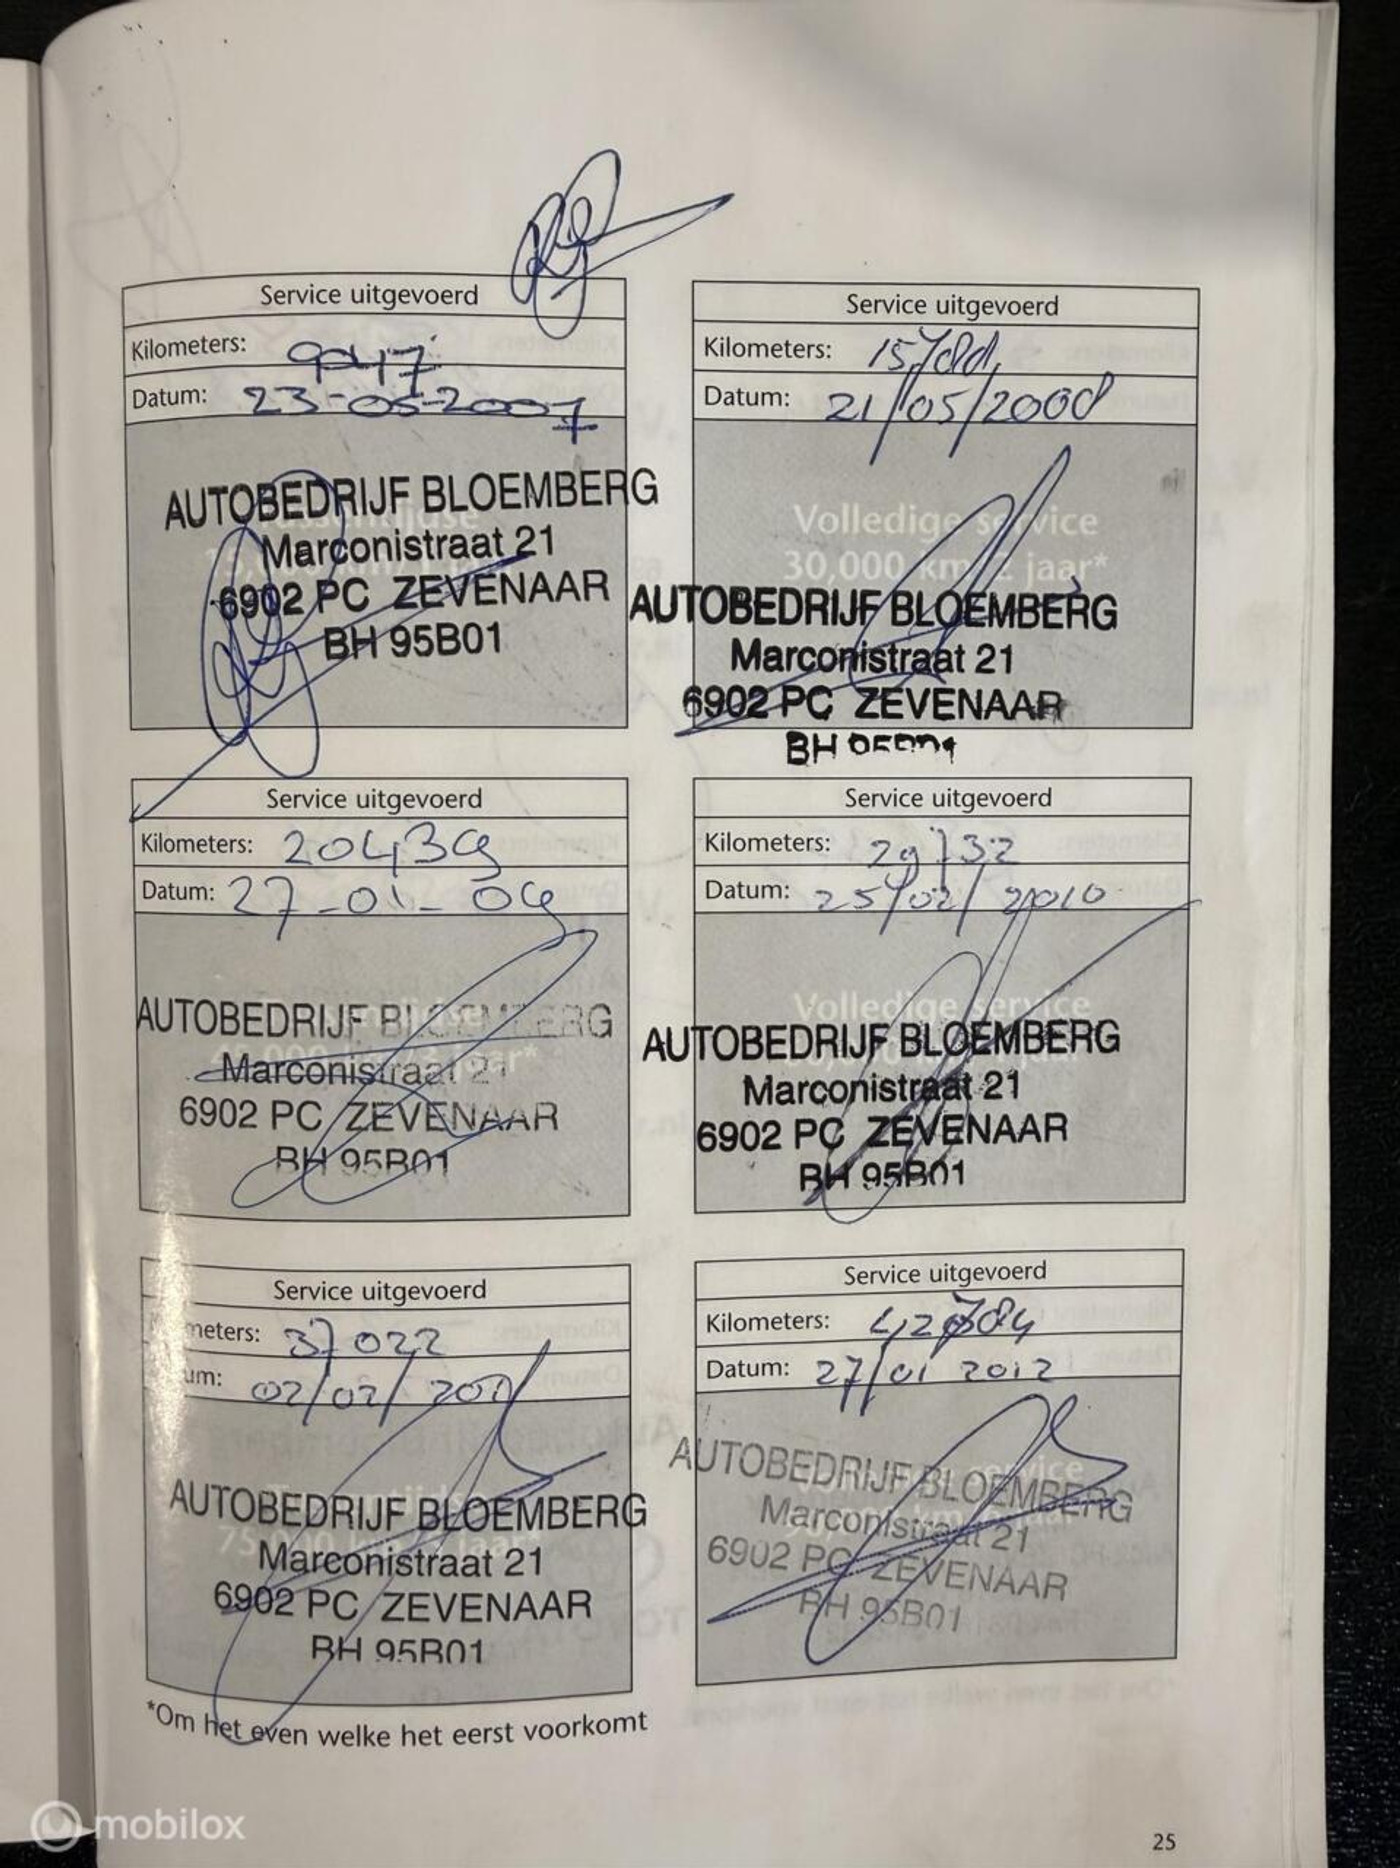 Service uitgevoerd
Kilometers: 9447
Datum: 23-05-2007
AUTOBEDRIJF BLOEMBERG
Marconistraat 21
6902 PC ZEVENAAR
BH 95B01
Service uitgevoerd
Kilometers:
Datum: 21/05/2008
Volledige service
30,000 km/2 jaar*
AUTOBEDRIJF BLOEMBERG
Marconistraat 21
6902 PC ZEVENAAR
BH
Service uitgevoerd
Kilometers: 20439
Datum: 27-01-09
AUTOBEDRIJF BLOEMBERG
Marconistraat 21
6902 PC ZEVENAAR
BH 95B01
Service uitgevoerd
Kilometers: 29732
Datum: 25/02/2010
Volledige service
AUTOBEDRIJF BLOEMBERG
Marconistraat 21
6902 PC ZEVENAAR
BH 95B01
Service uitgevoerd
meters: 37022
um: 02/02/2011
AUTOBEDRIJF BLOEMBERG
Marconistraat 21
6902 PC ZEVENAAR
BH 95B01
Service uitgevoerd
Kilometers: 42784
Datum: 27/01 2012
AUTOBEDRIJF BLOEMBERG
Marconistraat 21
6902 PC ZEVENAAR
BH 95B01
*Om het even welke het eerst voorkomt
mobilox
25